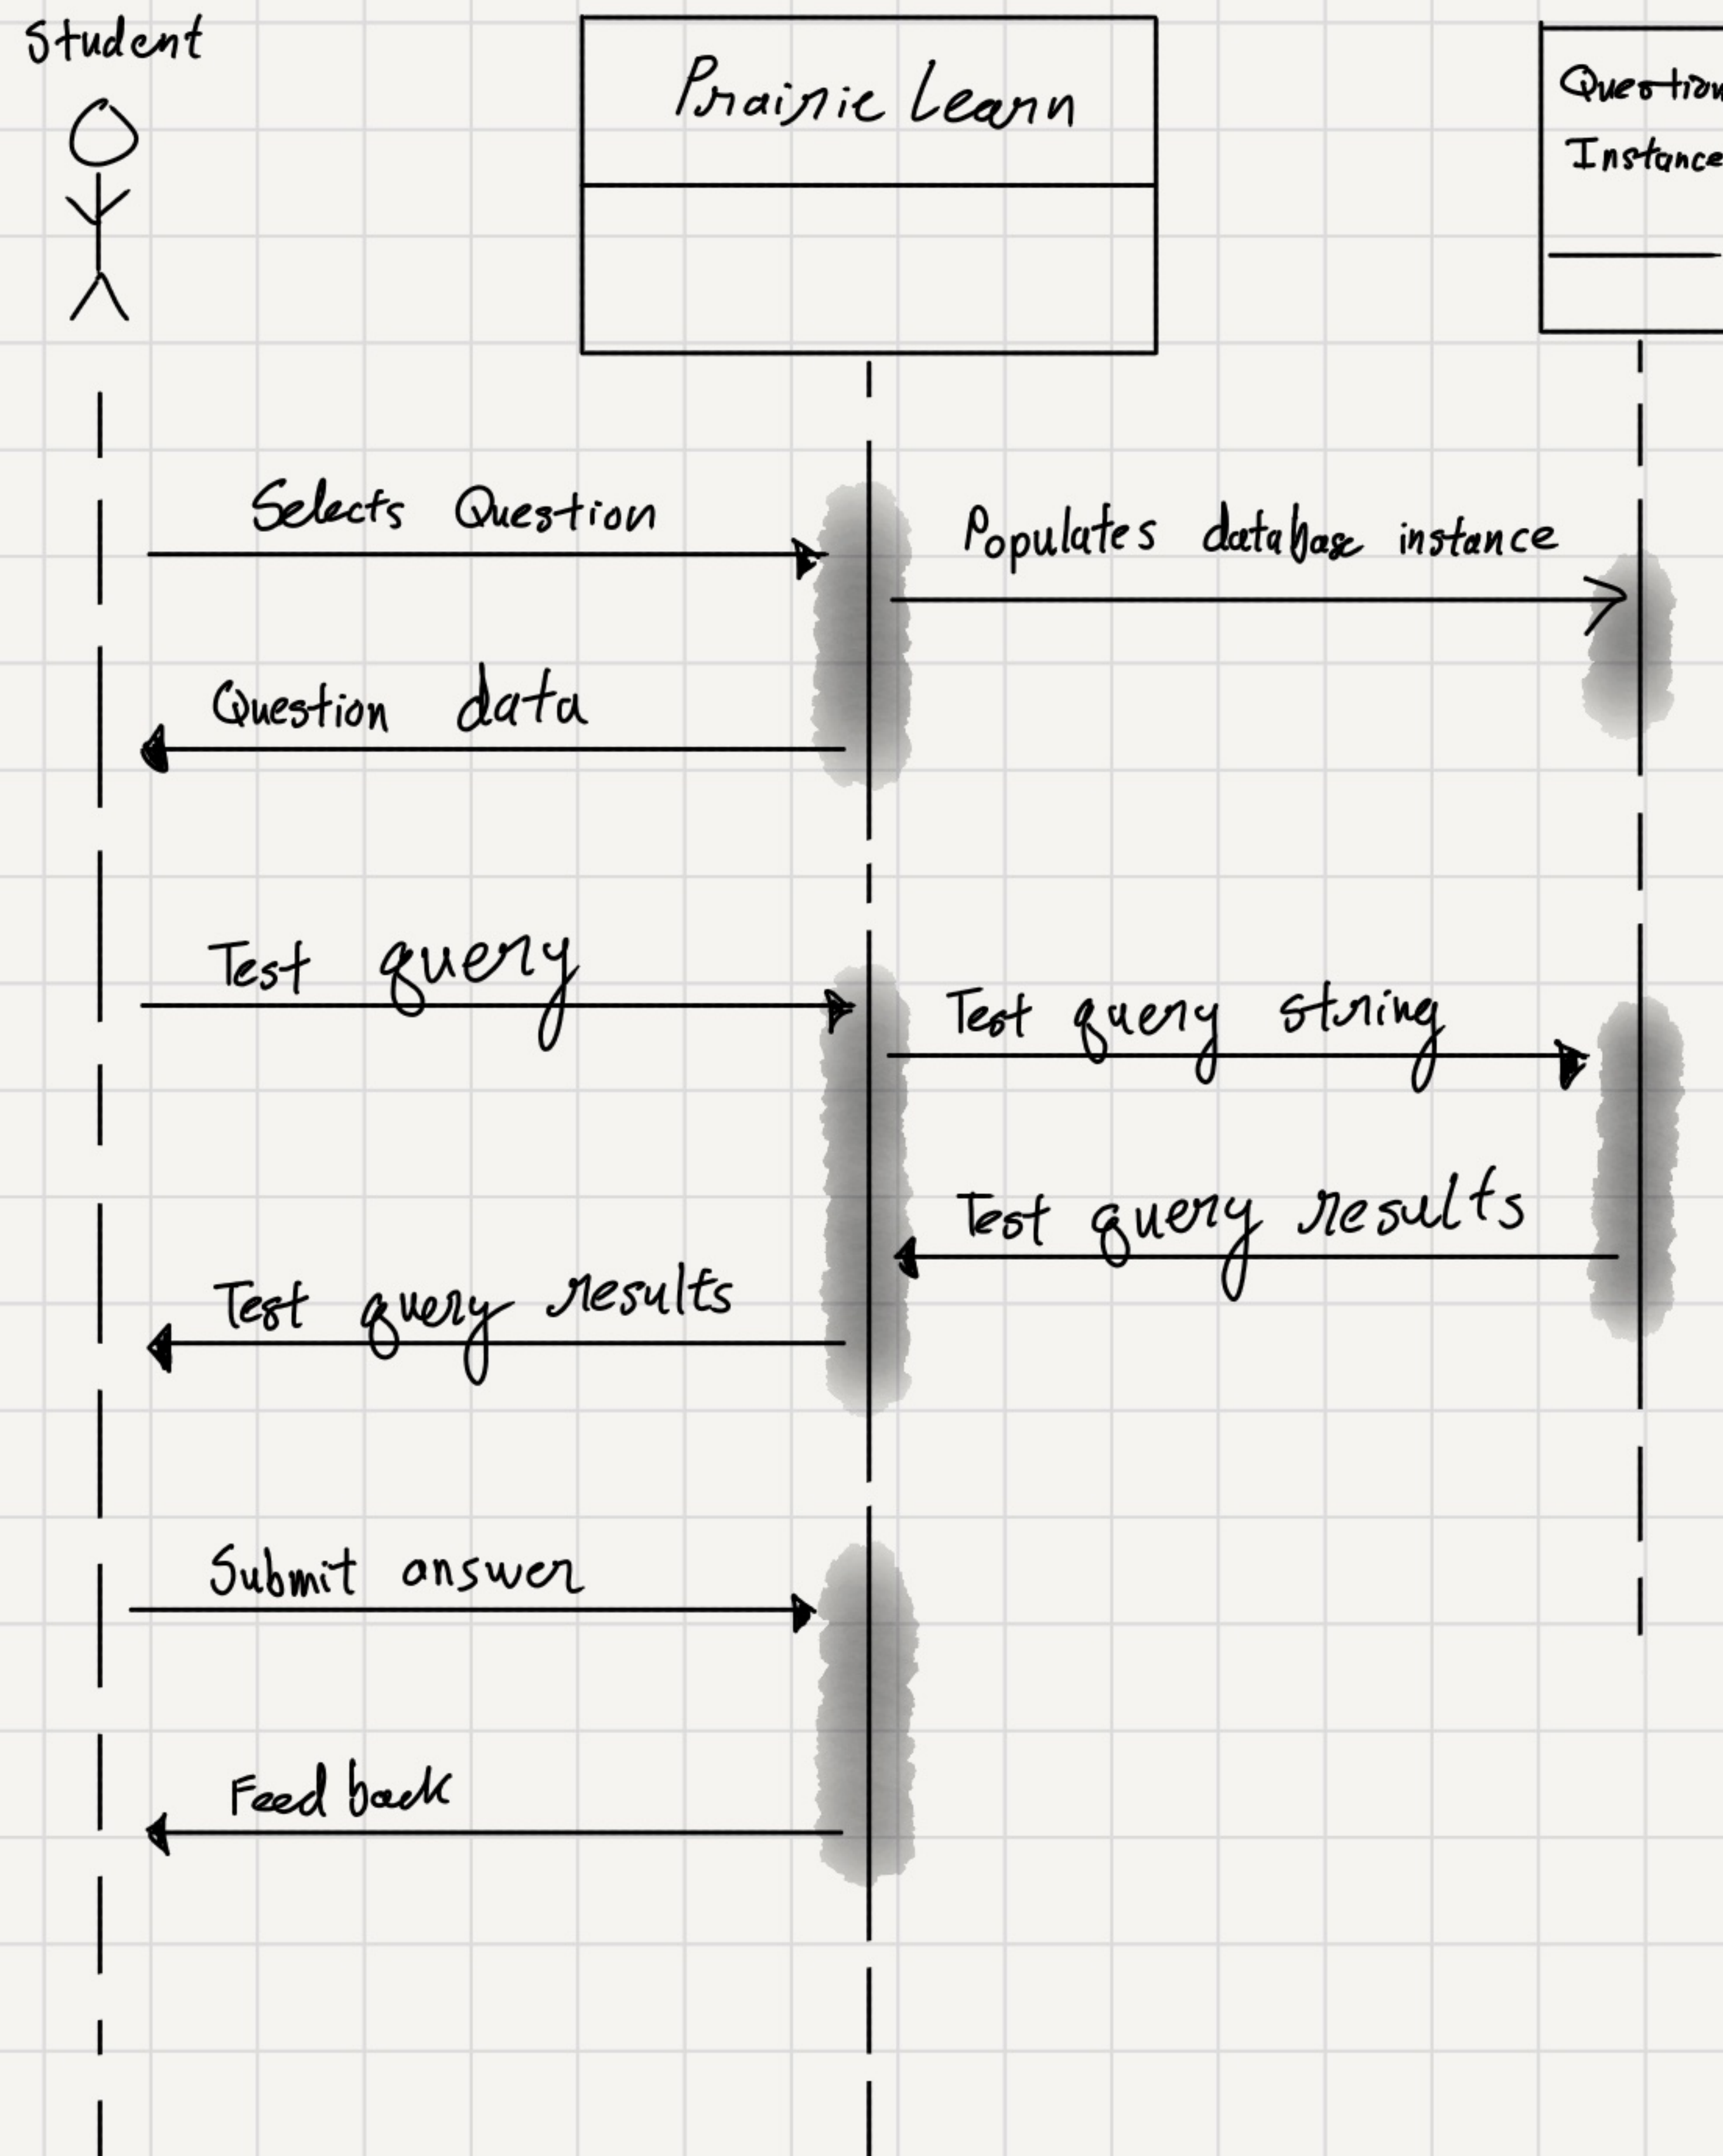 Student
Prairie Learn
Question
Instance
Selects Question
Populates database instance
Question data
Test query
Test query string
Test query results
Test query results
Submit answer
Feedback